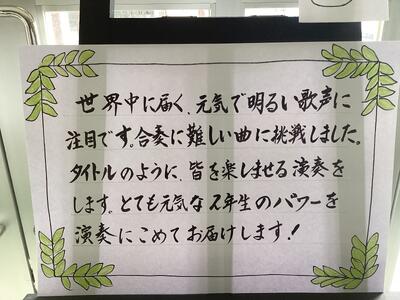 世界中に届く、元気で明るい歌声に
注目です。合奏に難しい曲に挑戦しました。
タイトルのように、皆を楽しませる演奏を
します。とても元気な2年生のパワーを
演奏にこめてお届けします!